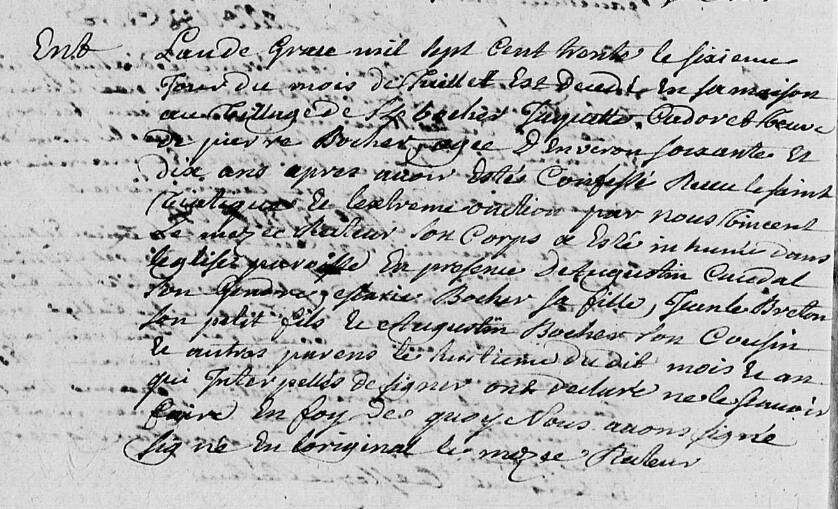 Ent Lan de Grace mil sept Cent trente le sixieme
Jour du mois de Juillet Est Decedé En sa maison
au Village de Bocher Jaquette Cadoret veuve
de pierre Bocher, agée D'Environ soixante Et
dix ans apres avoir Estés Confessé Receu le saint
Viatique & lextreme onction par nous Vincent
Le mezec Recteur son Corps a Esté in humé dans
leglise paroisse En presence De Augustin Caudal
son Gendre, Marie Bocher sa fille, Yven le Breton
son petit fils & Augustin Bocher son Cousin
& autres parens le huitieme du dit mois & an
qui Interpellés de signer ont declaré ne le scavoir
faire En foy De quoy Nous avons signé
signé En loriginal le mezec Recteur